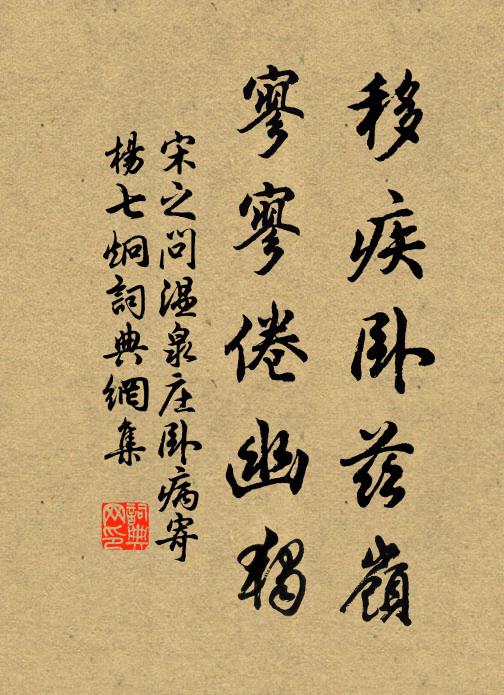 移疾卧兹嶺
寥寥倦幽獨
宋之問温泉庄卧病寄
楊七炯詞典網集
詞典網印